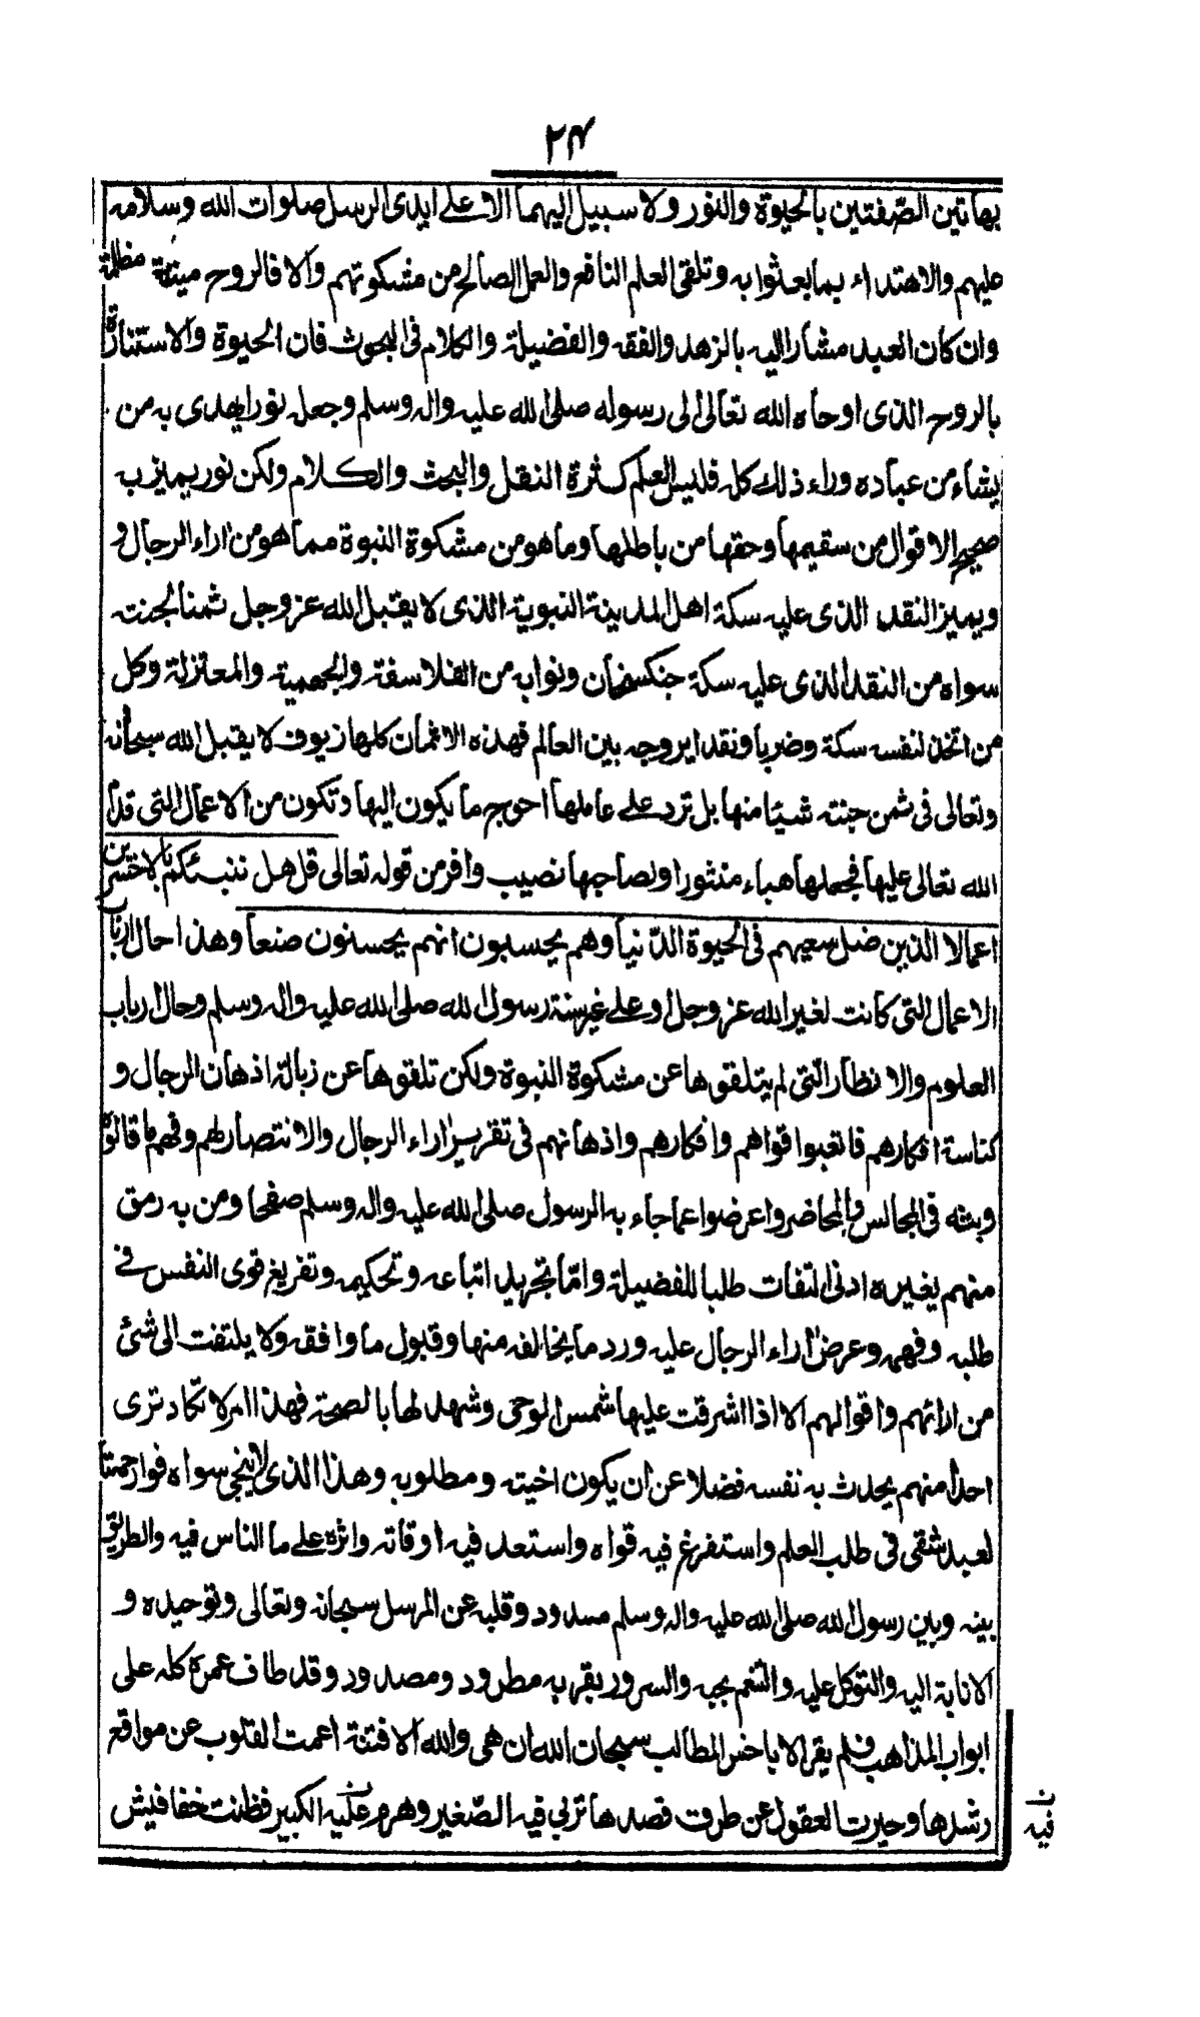 ٢٤
بهاتين الصّفتين بالحيوة والنور ولا سبيل اليهما الا على ايدى الرسل صلوات الله وسلامه
عليهم والاهتداء بما بعثوا به وتلقى العلم النافع والعمل الصالح من مشكوتهم والا فالروح ميتة مظلمة
وان كان العبد مشارا اليه بالزهد والفقه والفضيلة والكلام فى البحوث فان الحيوة والاستنارة
بالروح الذى اوحاه الله تعالى الى رسوله صلى الله عليه واله وسلم وجعله نورا يهدى به من
يشاء من عباده وراء ذلك كله فليس العلم كثرة النقل والبحث والكلام ولكن نور يميز به
صحيح الاقوال من سقيمها وحقها من باطلها وما هو من مشكوة النبوة مما هو من اراء الرجال و
ويميز النقد الذى عليه سكة اهل المدينة النبوية الذى لا يقبل الله عز وجل ثمنا لجنته
سواه من النقد الذى عليه سكة جنكسخان ونوابه من الفلاسفة والجهمية والمعتزلة وكل
من اتخذ لنفسه سكة وضربا ونقدا يروجه بين العالم فهذه الاثمان كلها زيوف لا يقبل الله سبحانه
وتعالى فى ثمن جنته شيئا منها بل ترد على عاملها احوج ما يكون اليها وتكون من الاعمال التى قدم
الله تعالى عليها فجعلها هباء منثورا ولصاحبها نصيب وافر من قوله تعالى قل هل ننبئكم بالاخسرين
اعمالا الذين ضل سعيهم فى الحيوة الدّنيا وهم يحسبون انهم يحسنون صنعا وهذا حال ارباب
الاعمال التى كانت لغير الله عز وجل او على غير سنة رسول الله صلى الله عليه واله وسلم وحال ارباب
العلوم والانظار التى لم يتلقوها عن مشكوة النبوة ولكن تلقوها عن زبالة اذهان الرجال و
كناسة افكارهم فاتعبوا قواهم وافكارهم واذهانهم فى تقرير اراء الرجال والانتصار لهم وفهم ما قالوه
وبثه فى المجالس والمحاضر واعرضوا عما جاء به الرسول صلى الله عليه واله وسلم صفحا ومن به رمق
منهم يغيره ادنى التفات طلبا للفضيلة وامّا تجريد اتباعه وتحكيمه وتفريغ قوى النفس فى
طلبه وفهمه وعرض اراء الرجال عليه ورد ما يخالفه منها وقبول ما وافقه ولا يلتفت الى شئ
من ارائهم واقوالهم الا اذا اشرقت عليها شمس الوحى وشهد لها بالصحة فهذا امر لا تكاد ترى
احدا منهم يحدث به نفسه فضلا عن ان يكون اخيته ومطلوبه وهذا الذى لا ينجى سواه فوارحمتا
لعبد شقى فى طلب العلم واستفرغ فيه قواه واستعد فيه اوقاته واثره على ما الناس فيه والطريق
بينه وبين رسول الله صلى الله عليه واله وسلم مسدود وقلبه عن المرسل سبحانه وتعالى وتوحيده و
الانابة اليه والتوكل عليه والتنعم بحبه والسرور بقربه مطرود ومصدود وقد طاف عمره كله على
ابواب المذاهب فلم يقر الا باخس المطالب سبحان الله ان هى والله الا فتنة اعمت القلوب عن مواقع
رشدها وحيرت العقول عن طرق قصدها تربى فيه الصّغير وهرم عليه الكبير فظنت خفافيش
ن
فيه